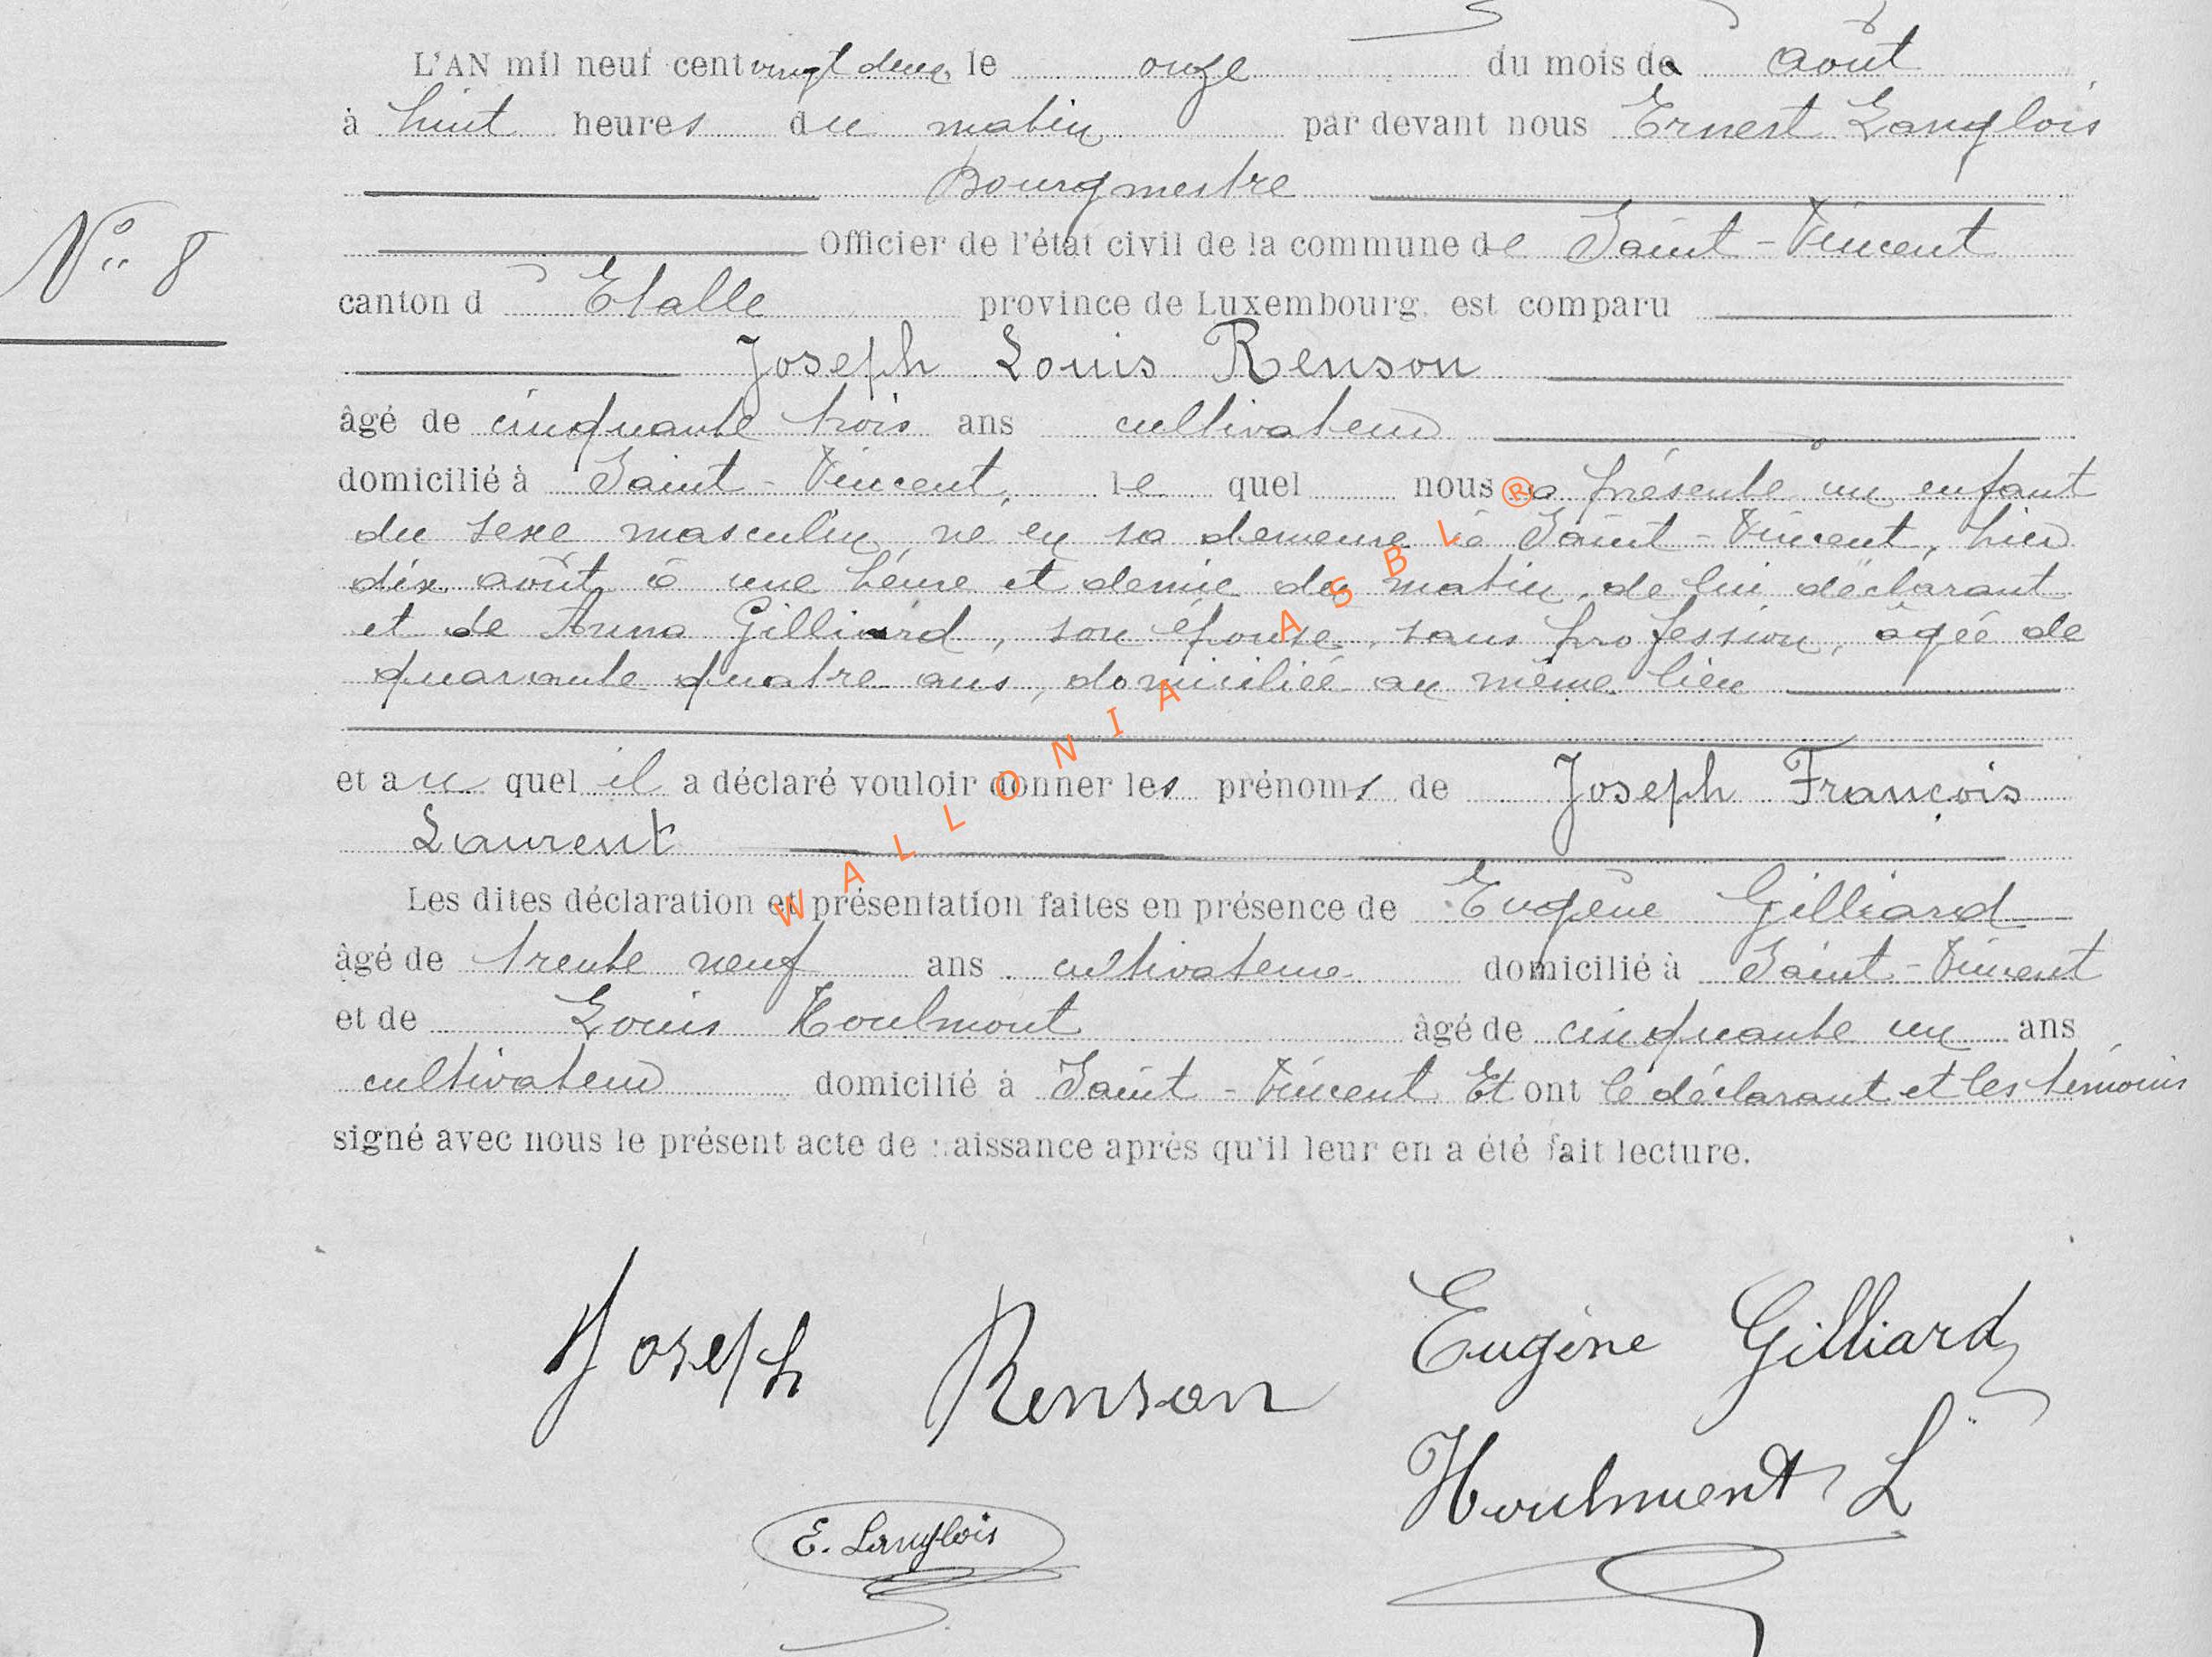 L'AN mil neuf cent vingt deux le onze du mois de Août
à huit heures du matin par devant nous Ernest Langlois
Bourgmestre
N° 8
Officier de l'état civil de la commune de Saint-Vincent
canton d Etalle province de Luxembourg, est comparu
Joseph Louis Renson
âgé de cinquante trois ans cultivateur
domicilié à Saint-Vincent, le quel nous a présenté un enfant
du sexe masculin né en sa demeure à Saint-Vincent, hier
dix août à une heure et demie du matin, de lui déclarant
et de Anna Gilliard, son épouse, sans profession, âgée de
quarante quatre ans, domiciliée au même lieu
et au quel il a déclaré vouloir donner les prénoms de Joseph François
Laurent
Les dites déclaration et présentation faites en présence de Eugène Gilliard
âgé de trente neuf ans cultivateur domicilié à Saint-Vincent
et de Louis Houlmont âgé de cinquante un ans
cultivateur domicilié à Saint-Vincent Et ont le déclarant et les témoins
signé avec nous le présent acte de naissance après qu'il leur en a été fait lecture.
Joseph Renson
Eugène Gilliard
Houlmont L
E. Langlois
WALLONIA ASBL ®